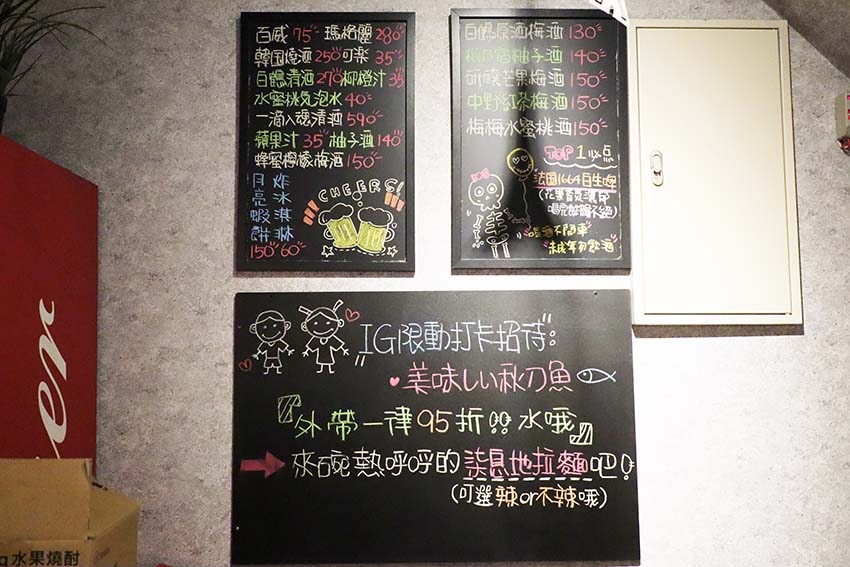 百威 75 瑪格麗 280
韓国燒酒 250 可樂 35
白鶴清酒 270 柳橙汁 35
水蜜桃気泡水 40
一滴入魂清酒 590
蘋果汁 35 柚子酒 140
蜂蜜檸檬梅酒 150
月亮蝦餅 150
炸冰淇淋 60
CHEERS!
白鶴原酒梅酒 130
柚子酒 140
芒果梅酒 150
中野紅茶梅酒 150
梅梅水蜜桃酒 150
TOP 1必点
法国1664白生啤
喝酒不開車
未成年勿飲酒
IG限動打卡招待:
美味しい秋刀魚
『外帶一律95折!! 水哦』
來碗熱呼呼的柒息地拉麵吧!
(可選辣or不辣哦)
er
水果燒酎